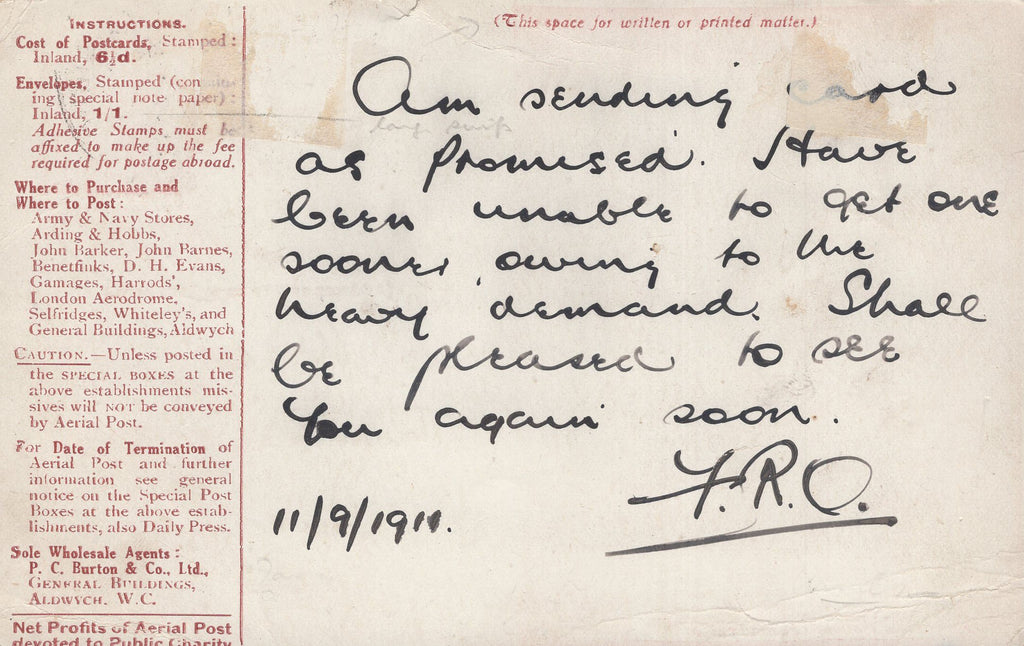 INSTRUCTIONS.
Cost of Postcards, Stamped:
Inland, 6½d.
Envelopes, Stamped (contain-
ing special note paper):
Inland, 1/1.
Adhesive Stamps must be
affixed to make up the fee
required for postage abroad.
Where to Purchase and
Where to Post:
Army & Navy Stores,
Arding & Hobbs,
John Barker, John Barnes,
Benetfinks, D. H. Evans,
Gamages, Harrods',
London Aerodrome,
Selfridges, Whiteley's, and
General Buildings, Aldwych
CAUTION.—Unless posted in
the SPECIAL BOXES at the
above establishments mis-
sives will NOT be conveyed
by Aerial Post.
For Date of Termination of
Aerial Post and further
information see general
notice on the Special Post
Boxes at the above estab-
lishments, also Daily Press.
Sole Wholesale Agents:
P. C. Burton & Co., Ltd.,
GENERAL BUILDINGS,
ALDWYCH, W.C.
Net Profits of Aerial Post
devoted to Public Charity
(This space for written or printed matter.)
Am sending card
as promised. Have
been unable to get one
sooner, owing to the
heavy demand. Shall
be pleased to see
you again soon.
F.R.O.
11/9/1911.